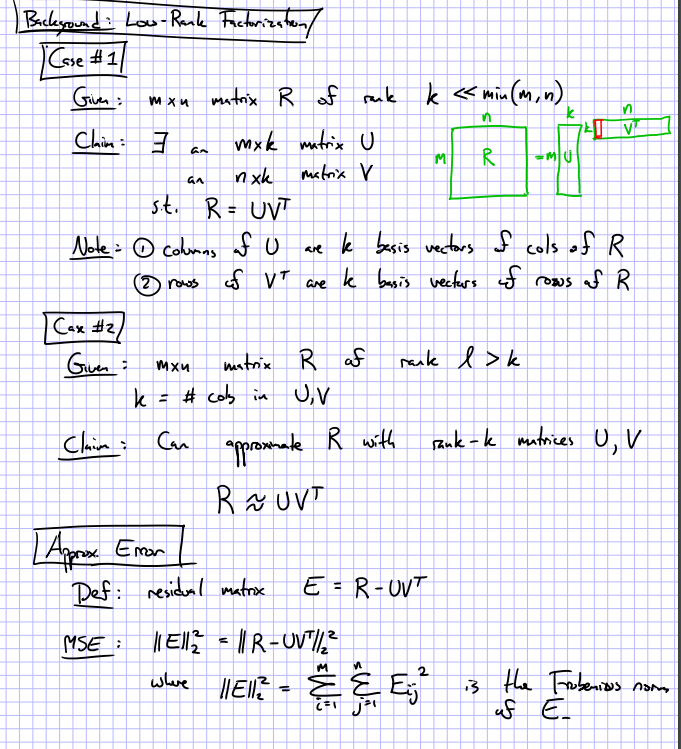 Background: Low-Rank Factorization
Case #1
Given: mxn matrix R of rank k << min(m,n)
Claim: ∃ an mxk matrix U
an nxk matrix V
s.t. R = UVᵀ
n
m R = m U
k
k Vᵀ
n
Note: ① columns of U are k basis vectors of cols of R
② rows of Vᵀ are k basis vectors of rows of R
Case #2
Given: mxn matrix R of rank l > k
k = # cols in U,V
Claim: Can approximate R with rank-k matrices U, V
R ≈ UVᵀ
Approx. Error
Def: residual matrix E = R - UVᵀ
MSE: ||E||₂² = ||R - UVᵀ||₂²
where ||E||₂² = Σᵢ₌₁ᵐ Σⱼ₌₁ⁿ Eᵢⱼ² is the Frobenius norm
of E.